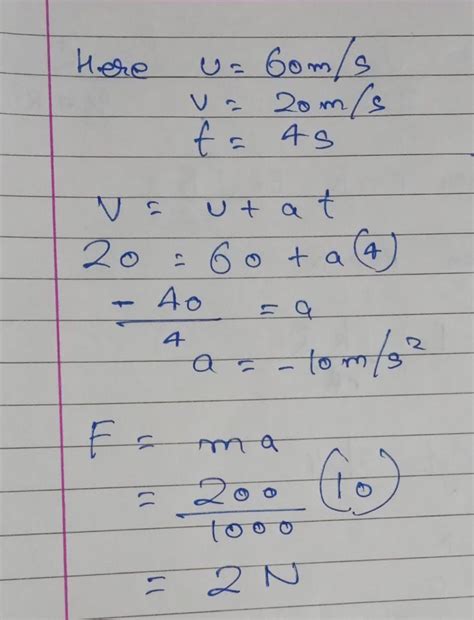 Here u = 60m/s
v = 20m/s
t = 4s
V = u + at
20 = 60 + a(4)
-40/4 = a
a = -10m/s²
F = ma
= 200/1000 (10)
= 2N